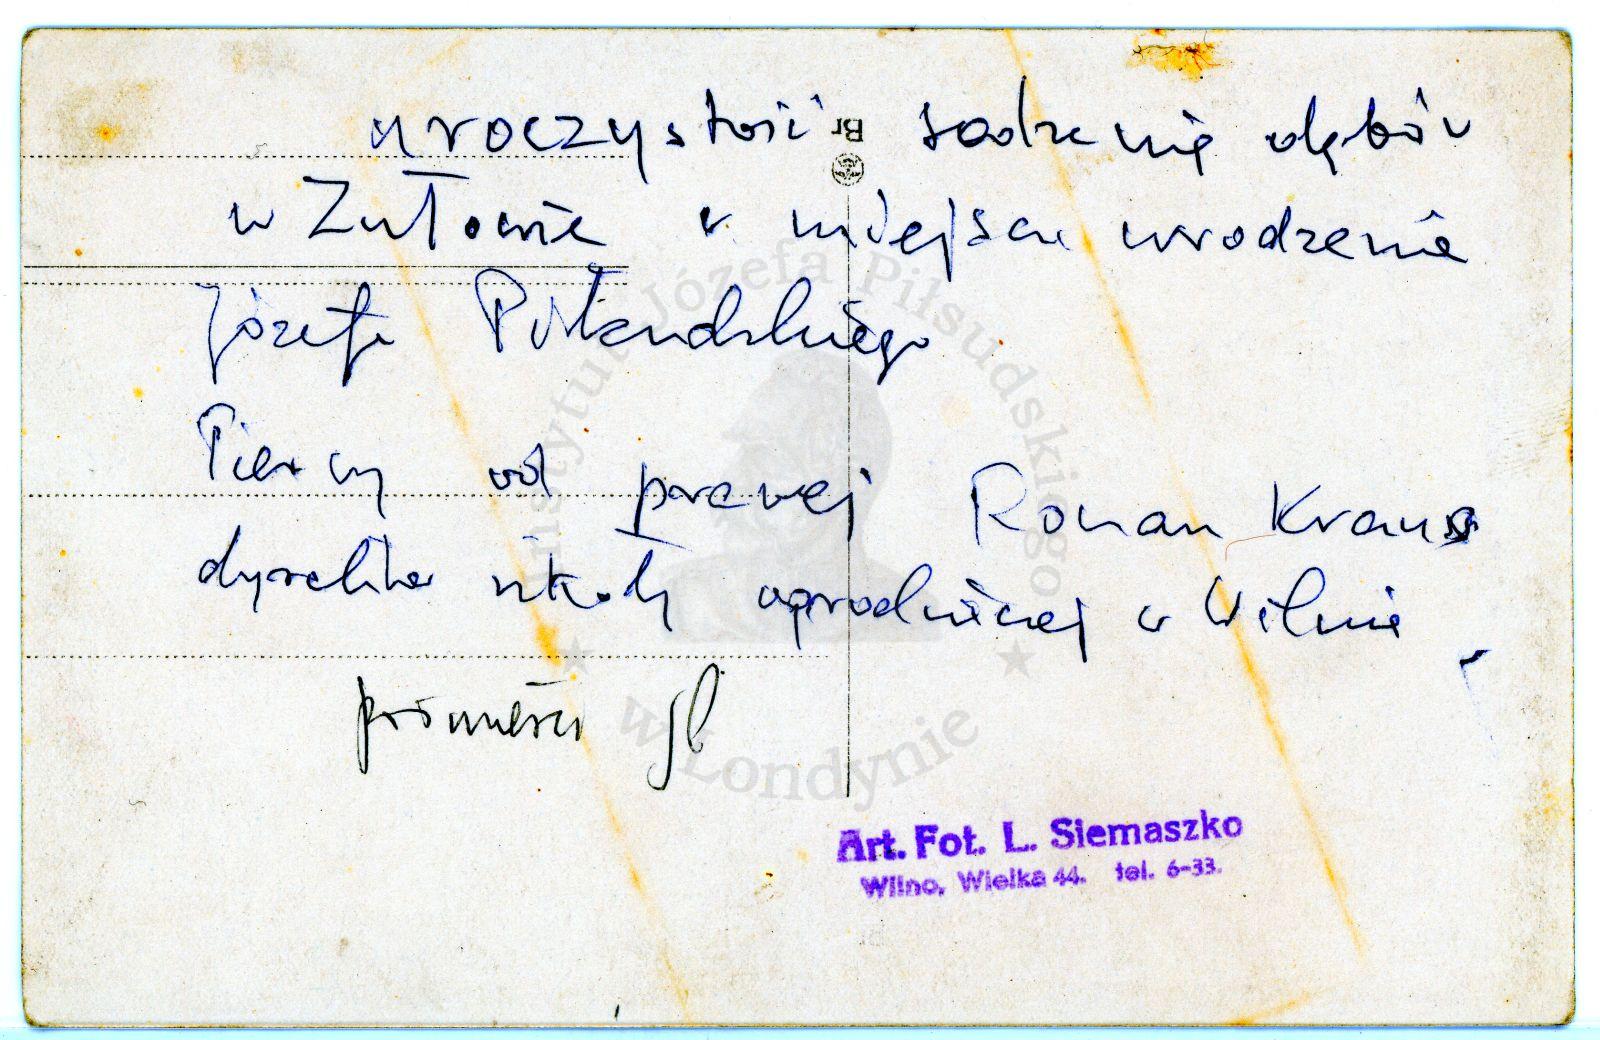 uroczystość sadzenie dębów
w Zułowie w miejscu urodzenia
Józefa Piłsudskiego
Pierwszy od prawej Roman Kraus
dyrektor szkoły ogrodniczej w Wilnie
Br
Instytut Józefa Piłsudskiego
w Londynie
Art. Fot. L. Siemaszko
Wilno, Wielka 44. tel. 6-33.